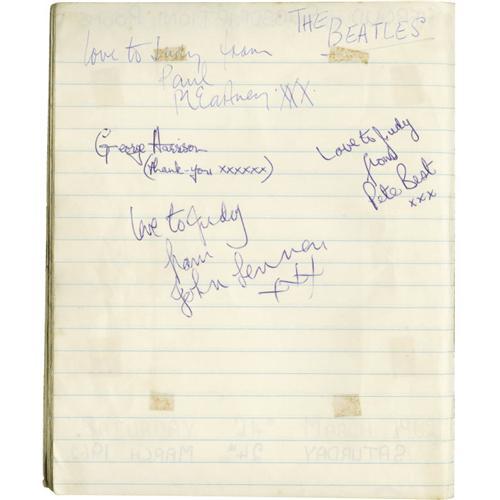 THE BEATLES
Love to Judy from
Paul
McCartney XXX.
George Harrison
(thank-you xxxxxx)
Love to Judy
from
Pete Best
xxx
love to Judy
from
John Lennon
xxx
SATURDAY 24th MARCH